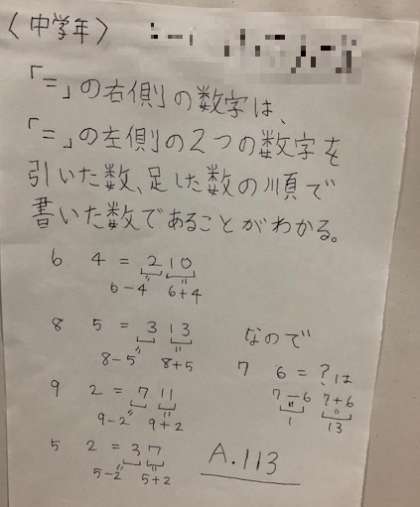 〈中学年〉
「=」の右側の数字は、
「=」の左側の2つの数字を
引いた数、足した数の順で
書いた数であることがわかる。
6 4 = 210
6-4 6+4
8 5 = 313
8-5 8+5
9 2 = 711
9-2 9+2
5 2 = 37
5-2 5+2
なので
7 6 = ?は
7-6 7+6
1 13
A.113